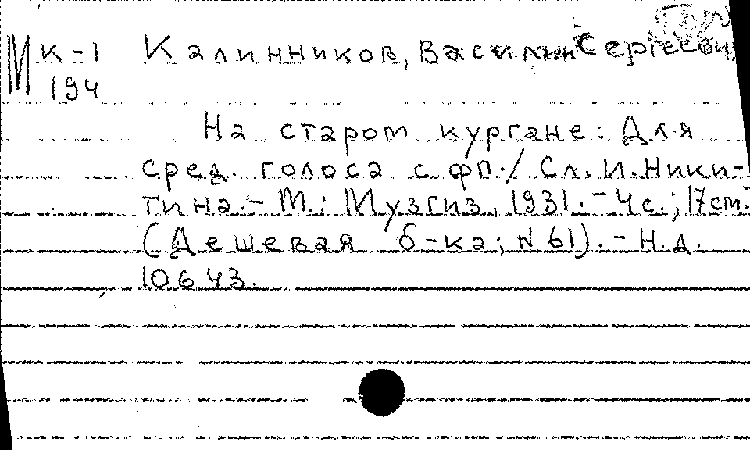 М К-1 Калинников, Василий Сергеевич
194
На старом кургане: Для
сред. голоса с фп./ Сл. И. Ники-
тина.- М.: Музгиз, 1931.- 4с.; 17см.-
(Дешевая б-ка; N 61).- Н.д.
10643.